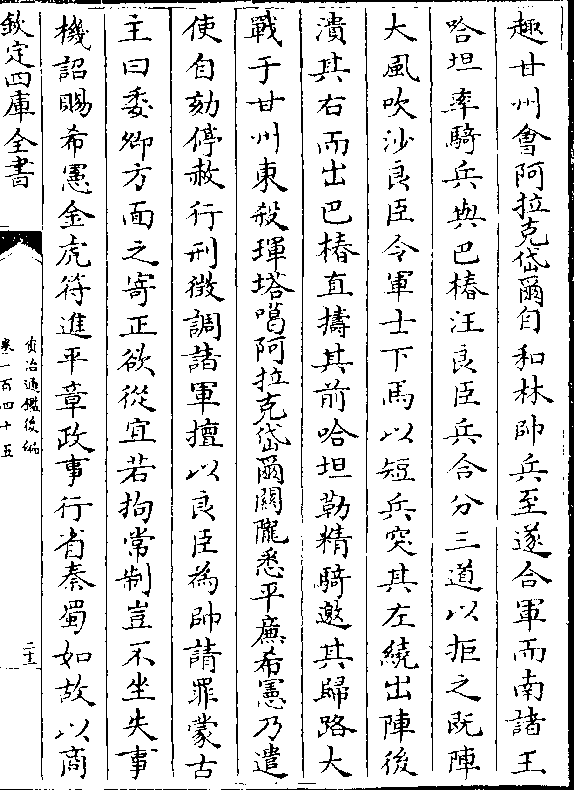 趣甘州會阿拉克岱爾自和林帥兵至遂合軍而南諸王
哈坦率騎兵與巴椿汪良臣兵合分三道以拒之既陣
大風吹沙良臣令軍士下馬以短兵突其左繞出陣後
潰其右而出巴椿直擣其前哈坦勒精騎邀其歸路大
戰于甘州東殺琿塔噶阿拉克岱爾關隴悉平廉希憲乃遣
使自劾停赦行刑徴調諸軍擅以良臣為帥請罪蒙古
主曰委卿方面之寄正欲從宜若拘常制豈不坐失事
機詔賜希憲金虎符進平章政事行省秦蜀如故以商
欽定四庫全書
資治通鑑後編
卷一百四十五